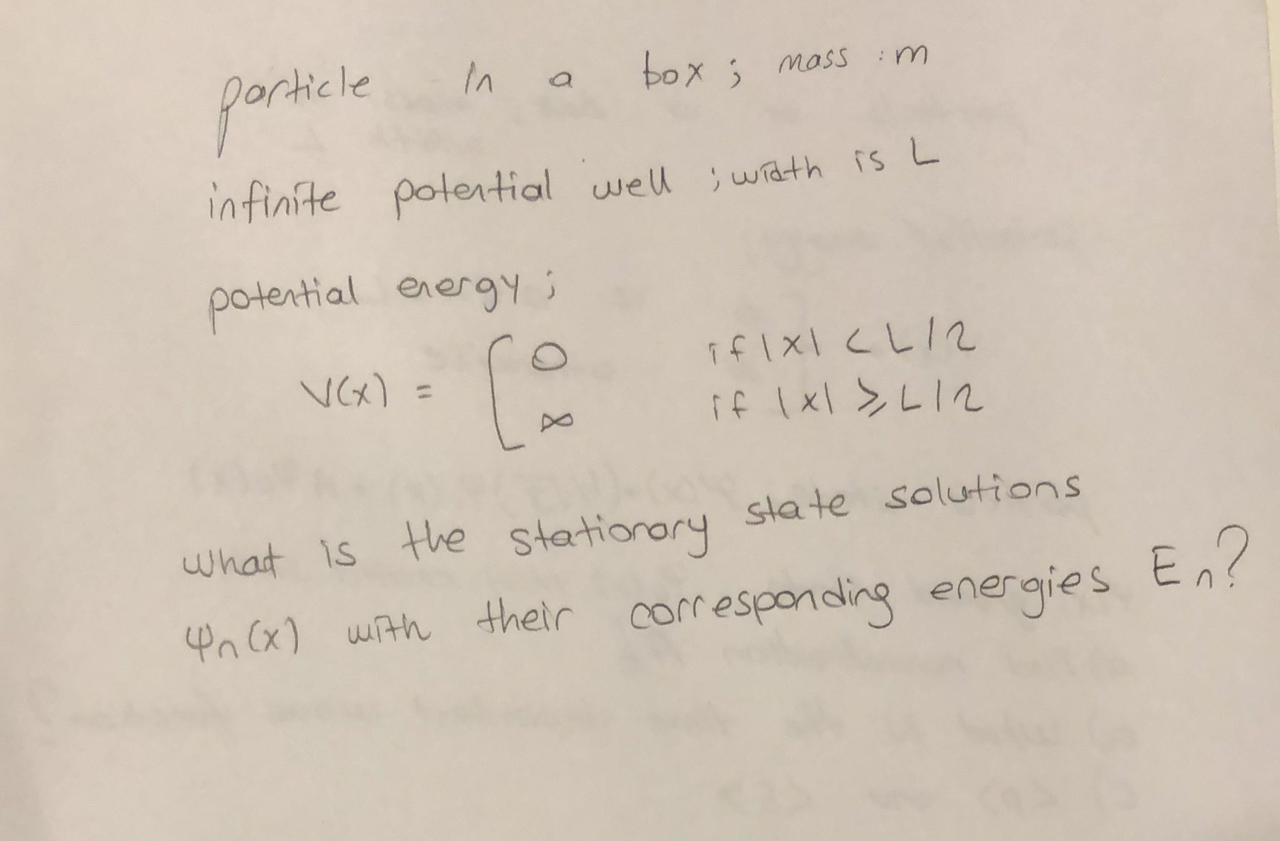 particle in a box; mass : m
infinite potential well ; width is L
potential energy;
V(x) = [ 0 if |x| < L/2
∞ if |x| ⩾ L/2
what is the stationary state solutions
ψn(x) with their corresponding energies En?